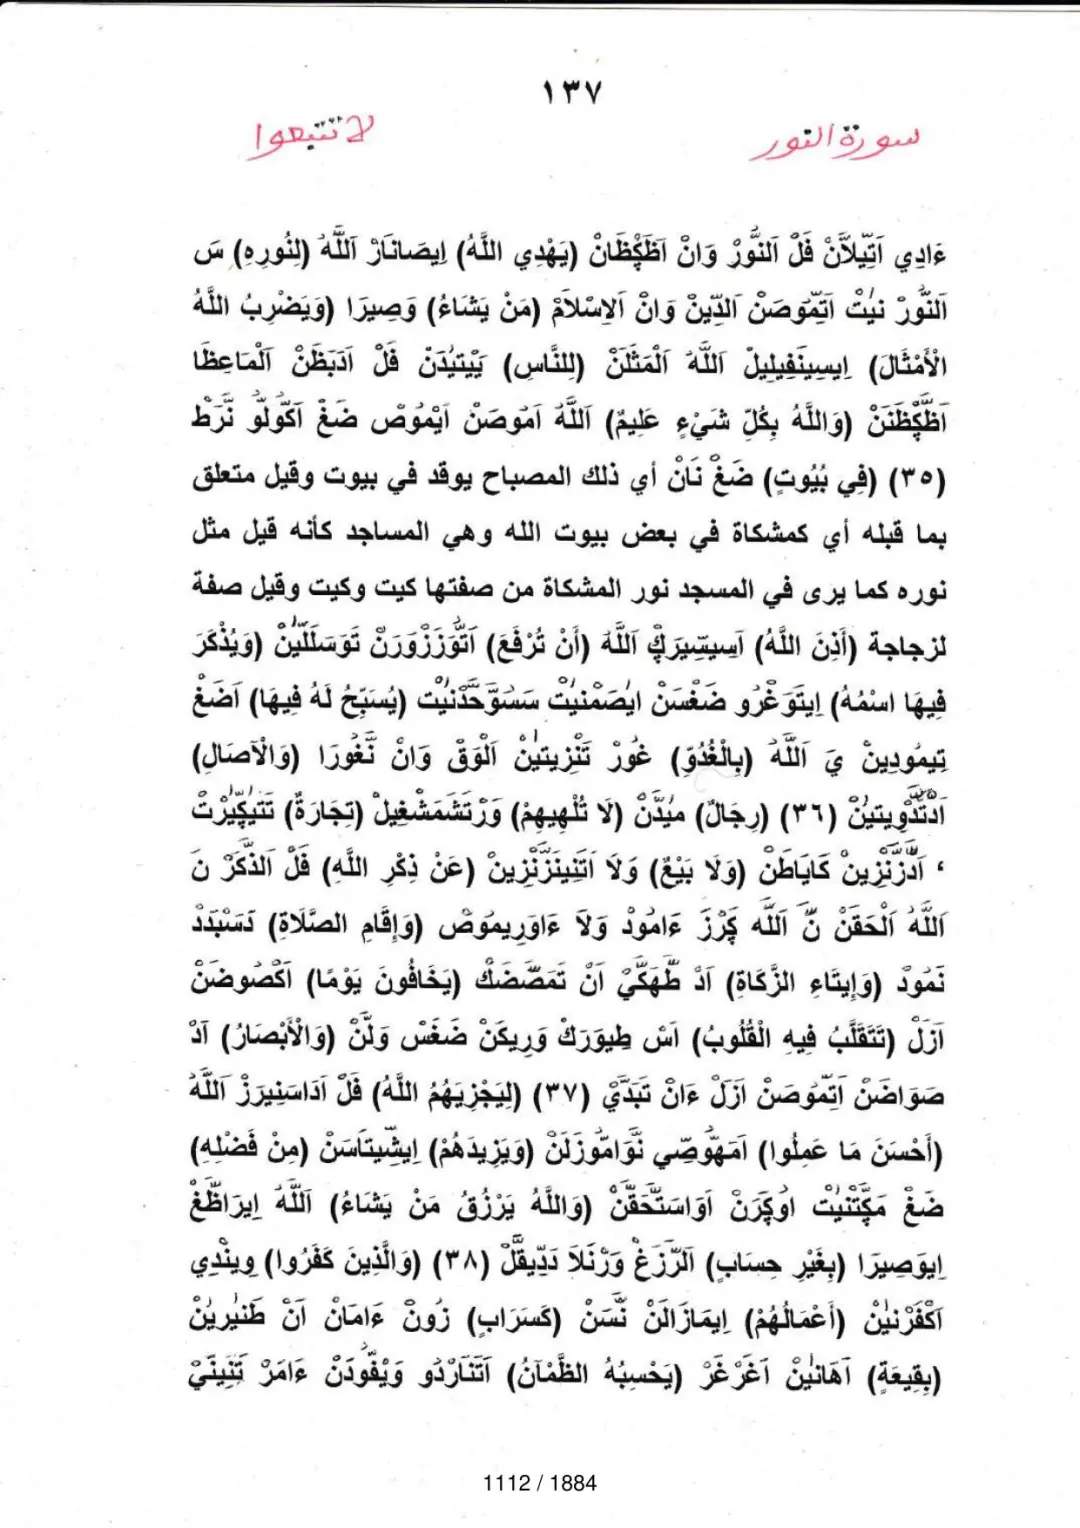 ١٣٧
سورة النور
لا تتبعوا
ءَادِي اَتِّيلَآنْ فَلْ اَلنُّورْ وَانْ اَظَكِّظَانْ (يَهْدِي اللَّهُ) اِيصَانَارْ اَللَّهْ (لِنُورِهِ) سَ
اَلنُّورْ نِيْت اَتِّمُوصَنْ اَلدِّينْ وَانْ اَلاِسْلَامْ (مَنْ يَشَاءُ) وَصِيرَا (وَيَضْرِبُ اللَّهُ
الْأَمْثَالَ) اِيسِينَفِيلِيلْ اَللَّهُ اَلْمَثَلَنْ (لِلنَّاسِ) يَيْتِيْدَنْ فَلْ اَدَبَظَنْ اَلْمَاعِظَا
اَظَّكِّظَنَنْ (وَاللَّهُ بِكُلِّ شَيْءٍ عَلِيمٌ) اَللَّهُ اَمُوصَنْ اَيْمُوصْ ضَغْ اَكُّولُو نَّرَطْ
(٣٥) (فِي بُيُوتٍ) ضَغْ نَانْ أي ذلك المصباح يوقد في بيوت وقيل متعلق
بما قبله أي كمشكاة في بعض بيوت الله وهي المساجد كأنه قيل مثل
نوره كما يرى في المسجد نور المشكاة من صفتها كيت وكيت وقيل صفة
لزجاجة (أَذِنَ اللَّهُ) اَسِيسِّيرَكْ اَللَّهُ (أَنْ تُرْفَعَ) اَتُّوَزْزُورَنْ تَوَسَلَّلِيْنْ (وَيُذْكَرَ
فِيهَا اسْمُهُ) اِيتَوَغْرُو ضَغْسَنْ اِيْصَمْنِيْت سَسُوَّحَّدْنِيْت (يُسَبِّحُ لَهُ فِيهَا) اَضَغْ
تِيمُودِينْ يَ اَللَّهُ (بِالْغُدُوِّ) غُورْ تَنْزِيتِيْنْ اَلْوَقْ وَانْ نَّغُورَا (وَالْآصَالِ)
(٣٦) (رِجَالٌ) مَيْدَّنْ (لَا تُلْهِيهِمْ) وَرْتَشَمَشْغِيلْ (تِجَارَةٌ) تَتَيكِّيرْتْ
، اَدَّزَنْزِينْ كَايَاطَنْ (وَلَا بَيْعٌ) وَلَا اَتَنِينَزَنْزِينْ (عَنْ ذِكْرِ اللَّهِ) فَلْ اَلذِّكَرْ نَ
اَللَّهُ اَلْحَقَنْ نَّ اَللَّه كَرَزْ ءَامُودْ وَلَا ءَاوَرِيمُوضْ (وَإِقَامِ الصَّلَاةِ) دَسْبَدَدْ
نَمُودْ (وَإِيتَاءِ الزَّكَاةِ) اَدْ طَّهَكَّيْ اَنْ تَمَصَّضَكْ (يَخَافُونَ يَوْمًا) اَكْصُوضَنْ
اَزَلْ (تَتَقَلَّبُ فِيهِ الْقُلُوبُ) اَسْ طِيوَرَكْ وَرِيكَنْ ضَغَسْ وَلَّنْ (وَالْأَبْصَارُ) اَدْ
صَوَاضَنْ اَتِّمُوصَنْ اَزَلْ ءَانْ تَبَدَّيْ (٣٧) (لِيَجْزِيَهُمُ اللَّهُ) فَلْ اَدَاسَنِيرَزْ اَللَّهُ
(أَحْسَنَ مَا عَمِلُوا) اَمَهُوصِّي نَوَامُّوزَلَنْ (وَيَزِيدَهُمْ) اِيشِّيتَاسَنْ (مِنْ فَضْلِهِ)
ضَغْ مَكِّتْنِيْت اوَكِّرَنْ اَوَاسَتَّحَقَّنْ (وَاللَّهُ يَرْزُقُ مَنْ يَشَاءُ) اَللَّهُ اِيرَاظَّغْ
اِيوَصِيرَا (بِغَيْرِ حِسَابٍ) اَلرِّزَغْ وَرْنَلَا دَدِّيقَلْ (٣٨) (وَالَّذِينَ كَفَرُوا) وِينْدِي
اَكْفَرْنِيْنْ (أَعْمَالُهُمْ) اِيمَازَالَنْ نَّسَنْ (كَسَرَابٍ) زُونْ ءَامَانْ اَنْ طَنِيْرِينْ
(بِقِيعَةٍ) اَهَانِيْنْ اَغَرْغَرْ (يَحْسِبُهُ الظَّمْآنُ) اَتَنَارْدُو وَيْفُودَنْ ءَامَرْ تَنِينَيْ
1112 / 1884